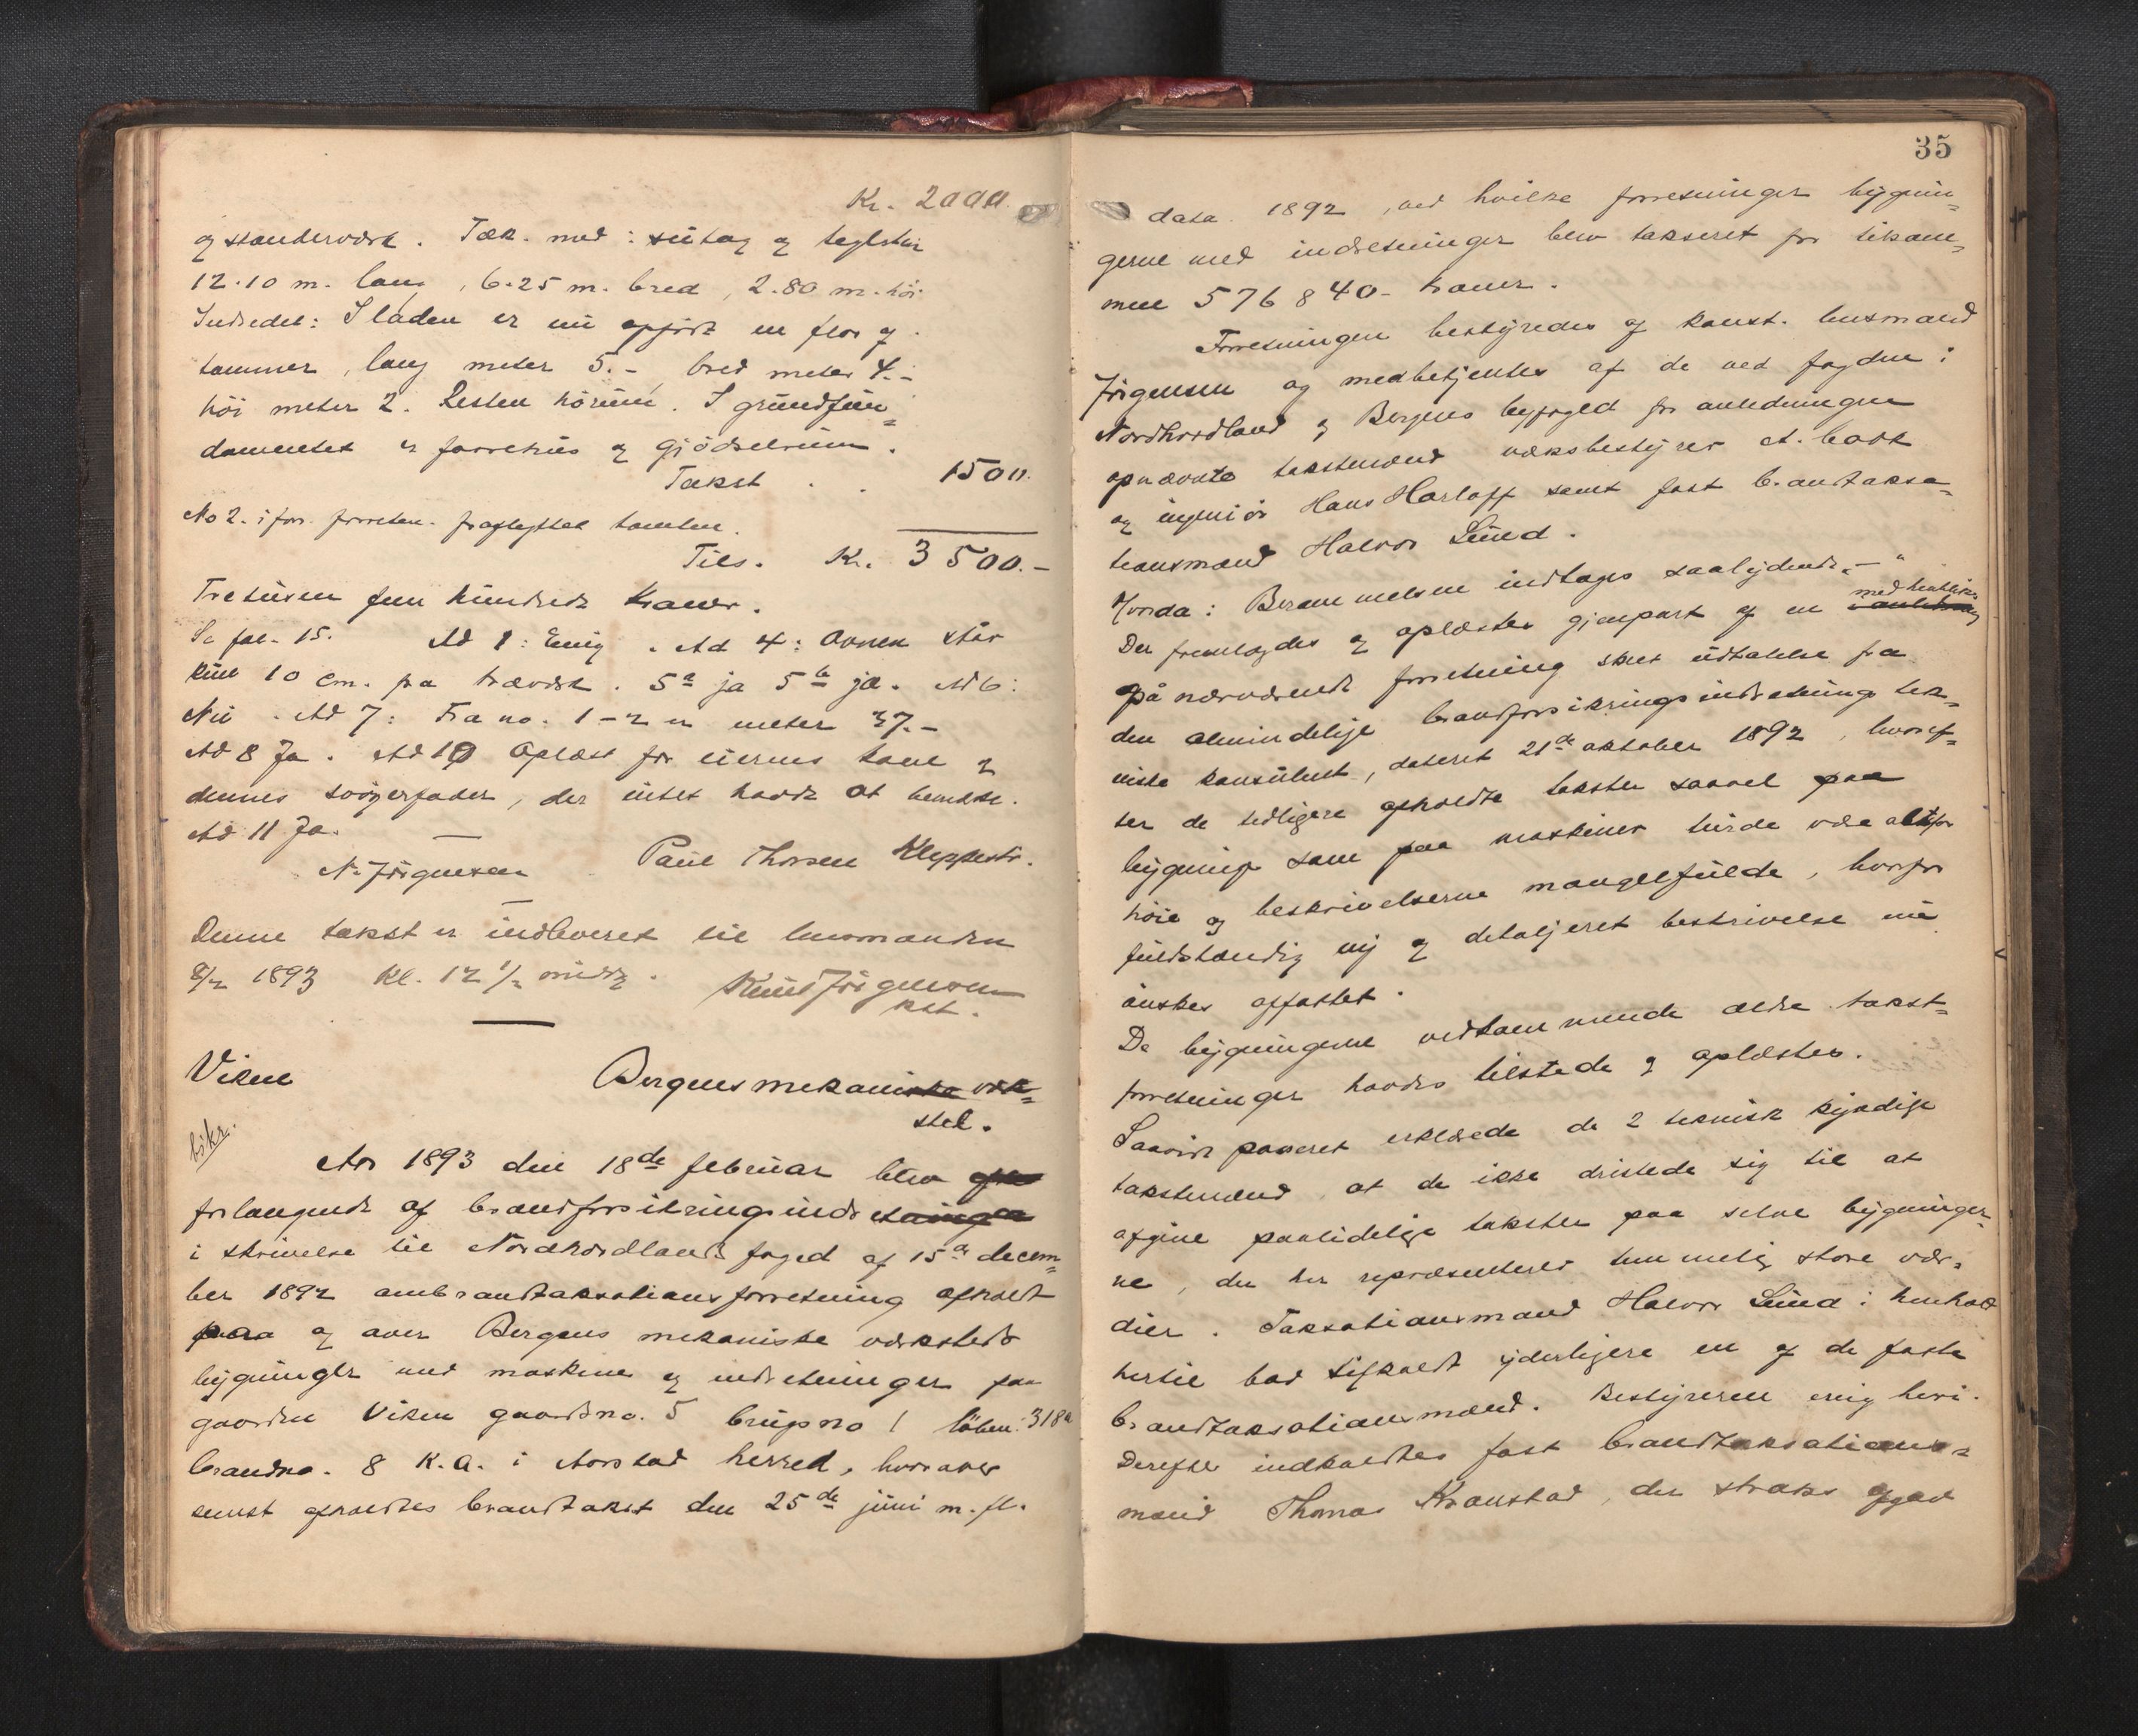 Kr. 2000.
og standerværk. Tæk. med: sutag og teglsten
12.10 m. lang, 6.25 m. bred, 2.80 m. høi
Indredet: I laden er nu opført en flor af
tømmer, lang meter 5.-, bred meter 4.-
høi meter 2. Resten hörum. I grundfun=
damentet er faarehus og gjödselrum.
Takst . . 1500.
No 2. i forr. forretn. fraflyttet tomten.
Tils. Kr. 3500.-
Tretusen fem hundrede kroner.
Se fol. 15. Ad 1: Enig. Ad 4: Ovnen står
kun 10 cm. fra trævæk. 5a ja 5b ja. Ad 6:
Nei. Ad 7: Fra no. 1-2 er meter 37.-
Ad 8 Ja. Ad 10 Oplæst for eierens kone og
dennes svigerfader, der intet havde at bemærke.
Ad 11 Ja.
N. Jörgensen Paul Thorsen Kleppestø.
Denne takst er indleveret til lensmanden
8/2 1893 Kl. 12 1/2 midd. Knud Jörgensen
kst.
Viken Bergens mekaniske værk=
sted.
Aar 1893 den 18de februar blev
forlangende af brandforsikringsindretningen
i skrivelse til Nordhordlands foged af 15de decem=
ber 1892 ombrandtaksationsforretning afholdt
paa og over Bergens mekaniske værksteds
bygninger med maskiner og indretninger paa
gaarden Viken gaardsno. 5 brugsno 1 löben. 318a
brandno. 8 K.a. i Aarstad herred, hvorover
senest afholdtes brandtakst den 25de juni m. fl.
35
data 1892, ved hvilke forretninger bygnin=
gerne med indretninger blev takseret for tilsam=
men 576 840- kroner.
Forretningen bestyredes af konst. lensmand
Jörgensen og medbetjentes af de ved fogden i
Nordhordland og Bergens byfoged for anledningen
opnævnte takstmænd værksbestyrer A.
og ingeniör Hans Harloff samt fast brandtaksa=
tionsmand Halvor Lund.
Berammelsen indtages saalydende „ — "
med henblik
Der fremlagdes og oplæstes gjenpart af en
på nærværende forretning skeet udtalelse fra
den almindelige brandforsikringsindretnings tek=
niske konsulent, dateret 21de oktober 1892, hvoref=
ter de tidligere afholdte takster saavel paa
bygning som paa maskiner turde være altfor
höie og beskrivelserne mangelfulde, hvorfor
fuldstændig ny og detaljeret beskrivelse nu
önskes affattet.
De bygningerne vedkommende ældre takst=
forretninger havdes tilstede og oplæstes.
Saavidt passeret erklærede de 2 teknisk kyndige
takstmænd, at de ikke dristede sig til at
afgive paalidelige takster paa selve bygninger=
ne, der her repræsenterer temmelig store vær=
dier. Taksationsmand Halvor Lund i henhold
hertil bad tilkaldt yderligere en af de faste
brandtaksationsmænd. Bestyreren enig heri.
Derefter indkaldtes fast brandtaksations=
mand Thomas Kronstad, der straks afgav